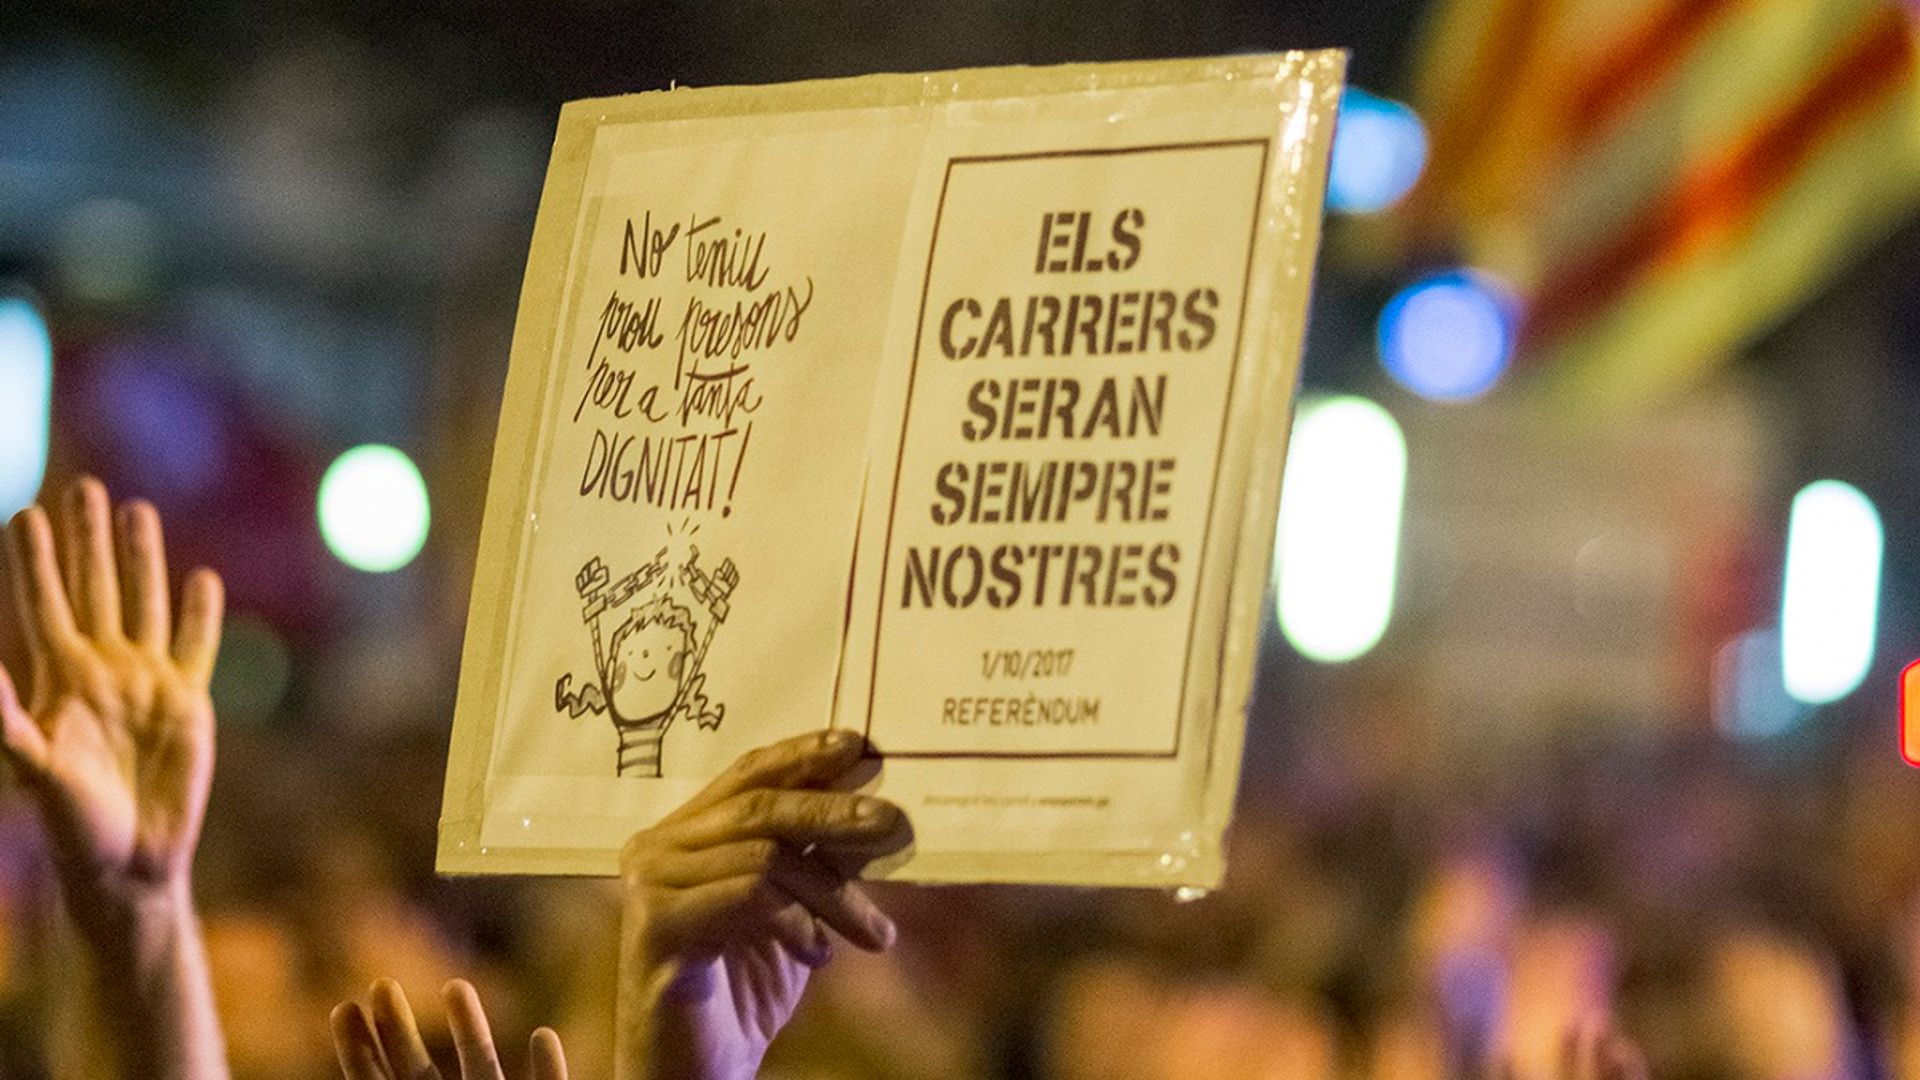 No teniu
prou presons
per a tanta
DIGNITAT!
ELS
CARRERS
SERAN
SEMPRE
NOSTRES
1/10/2017
REFERÈNDUM